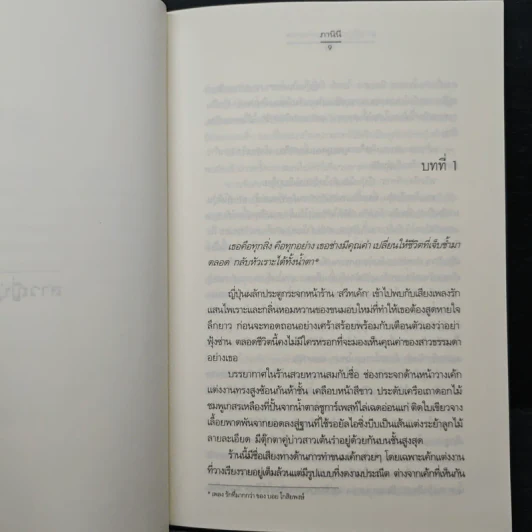 ภาณินี
9
บทที่ 1
เธอคือทุกสิ่ง คือทุกอย่าง เธอช่างมีคุณค่า เปลี่ยนให้ชีวิตที่เจ็บช้ำมา
ตลอด กลับหัวเราะได้ทั้งน้ำตา*
ญี่ปุ่นผลักประตูกระจกหน้าร้าน ‘สวีทเค้ก’ เข้าไปพบกับเสียงเพลงรัก
แสนไพเราะและกลิ่นหอมหวานของขนมอบใหม่ที่ทำให้เธอต้องสูดหายใจ
ลึกยาว ก่อนจะทอดถอนอย่างเศร้าสร้อยพร้อมกับเตือนตัวเองว่าอย่า
ฟุ้งซ่าน ตลอดชีวิตนี้คงไม่มีใครหรอกที่จะมองเห็นคุณค่าของสาวธรรมดา
อย่างเธอ
บรรยากาศในร้านสวยหวานสมกับชื่อ ช่องกระจกด้านหน้าวางเค้ก
แต่งงานทรงสูงซ้อนกันห้าชั้น เคลือบหน้าสีขาว ประดับเครือเถาดอกไม้
ชมพูเกสรเหลืองที่ปั้นจากน้ำตาลชูการ์เพสท์ไล่เฉดอ่อนแก่ ติดใบเขียวจาง
เลื้อยพาดพันจากยอดลงสู่ฐานที่ใช้รอยัลไอซิ่งบีบเป็นเส้นแต่งระย้าลูกไม้
ลายละเอียด มีตุ๊กตาคู่บ่าวสาวเต้นรำอยู่ด้วยกันบนชั้นสูงสุด
ร้านนี้มีชื่อเสียงทางด้านการทำขนมเค้กสวยๆ โดยเฉพาะเค้กแต่งงาน
ที่วางเรียงรายอยู่เต็มล้วนแต่มีรูปแบบที่งดงามประณีต ต่างจากเค้กที่เห็นกัน
* เพลง รักที่มากกว่า ของ บอย โกสิยพงษ์